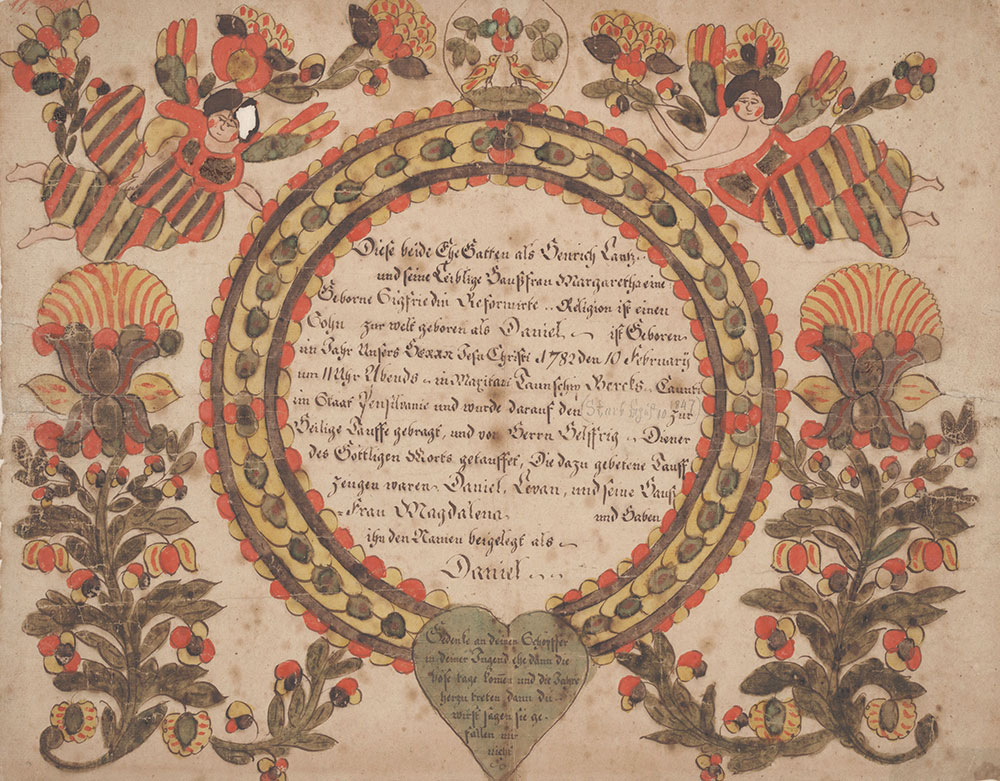 Diese beide Ehe Gatten als Henrich Lantz
und seine Leiblige Haußfrau Margaretha eine
Geborne Sigfriedin Reformirte Religion ist einen
Sohn zur welt geboren als Daniel ist Geboren
im Jahr Unsers Herrn Jesu Christi 1782 den 10 February
um 11 Uhr Abends in Maxitani Taunschip Bercks Caunti
im Staat Pensilvanie und wurde darauf den (Starb 10 1847) zur
Heilige Tauffe gebragt, und von Herrn Helffrig Diener
des Göttligen Worts getauffet, Die dazu gebetene Tauff
zeugen waren Daniel, Levan, und seine Hauß
Frau Magdalena und Haben
ihn den Namen beygelegt als
Daniel
Gedenke an deinen Schöpffer
in deiner Jugend Ehe dann die
böse tage komen und die Jahre
herzu treten dann du
wirst sagen sie ge-
fallen mir
nicht